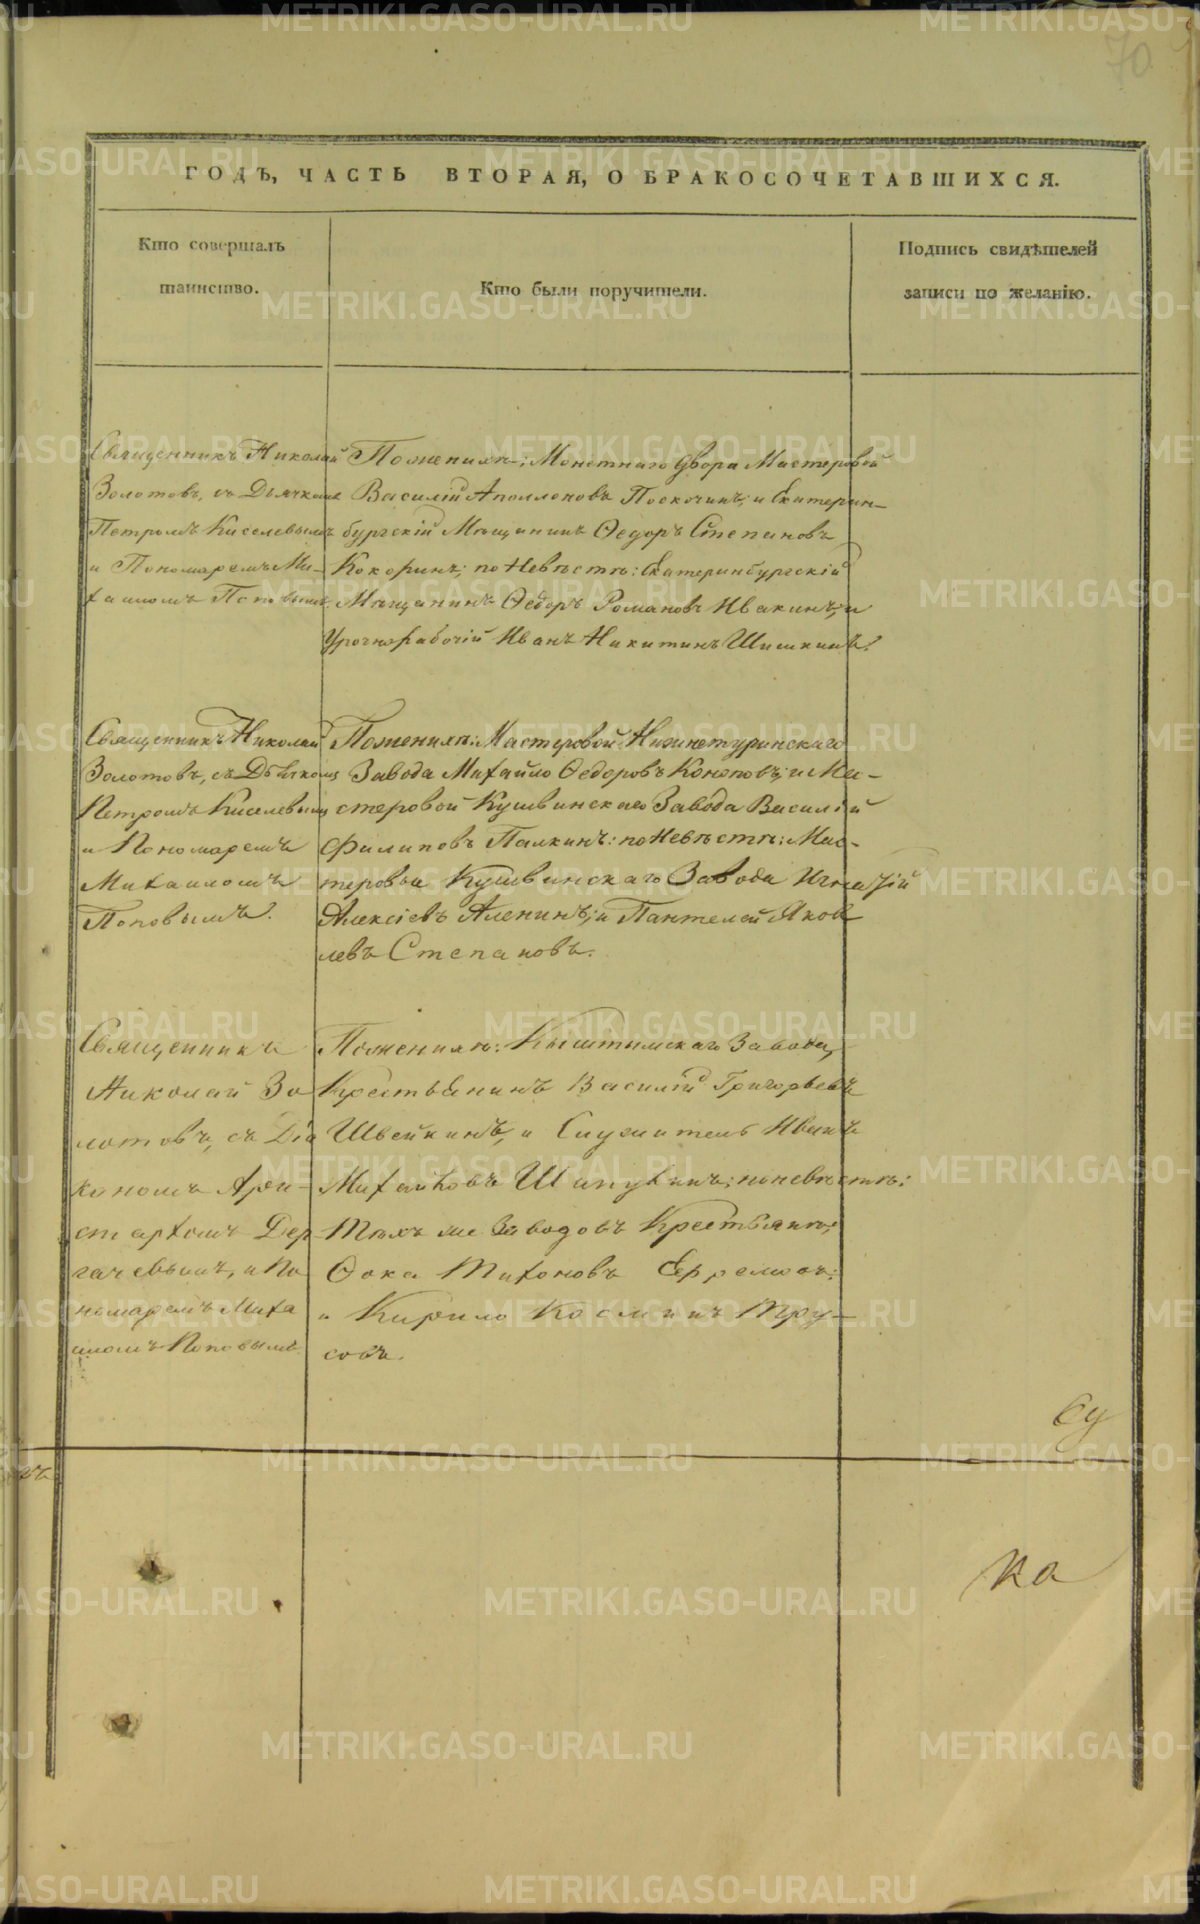 70
ГОДЪ, ЧАСТЬ ВТОРАЯ, О БРАКОСОЧЕТАВШИХСЯ.
Кто совершалъ
таинство.
Кто были поручители.
Подпись свидѣтелей
записи по желанію.
Священникъ Николай
Золотовъ, съ Дьячкомъ
Петромъ Киселевымъ
и Пономаремъ Ми-
хаиломъ Поповымъ.
По женихѣ: Монетнаго двора Мастеровой
Василій Аполлоновъ Поскочинъ; и Екатерин-
бургскій Мѣщанинъ Ѳедоръ Степановъ
Кокоринъ; по Невѣстѣ: Екатеринбургскій
Мѣщанинъ Ѳедоръ Романовъ Ивакинъ; и
Урочнорабочій Иванъ Никитинъ Шишкинъ.
Священникъ Николай
Золотовъ, съ Дьячкомъ
Петромъ Киселевымъ
и Пономаремъ
Михаиломъ
Поповымъ.
По женихѣ: Мастеровой Нижнетуринскаго
Завода Михайло Ѳедоровъ Коноповъ; и Ма-
стеровой Кушвинскаго Завода Василій
Филиповъ Палкинъ: по Невѣстѣ: Мас-
теровые Кушвинскаго Завода Игнатій
Алексіевъ Аленинъ; и Пантелей Яков
левъ Степановъ.
Священникъ
Николай Зо
лотовъ, съ Діа
кономъ Ари-
стархомъ Дер
гачевымъ, и По
номаремъ Миха
иломъ Поповымъ
По женихѣ: Кыштымскаго Завода,
Крестьянинъ Василій Григорьевъ
Швейкинъ, и Служитель Иванъ
Михайловъ Шапухинъ; по невѣстѣ:
Тѣхъ же Заводовъ Крестьяне;
Ѳока Тихоновъ Ефремовъ;
и Кирило Косминъ Тру-
совъ.
ка
METRIKI.GASO-URAL.RU